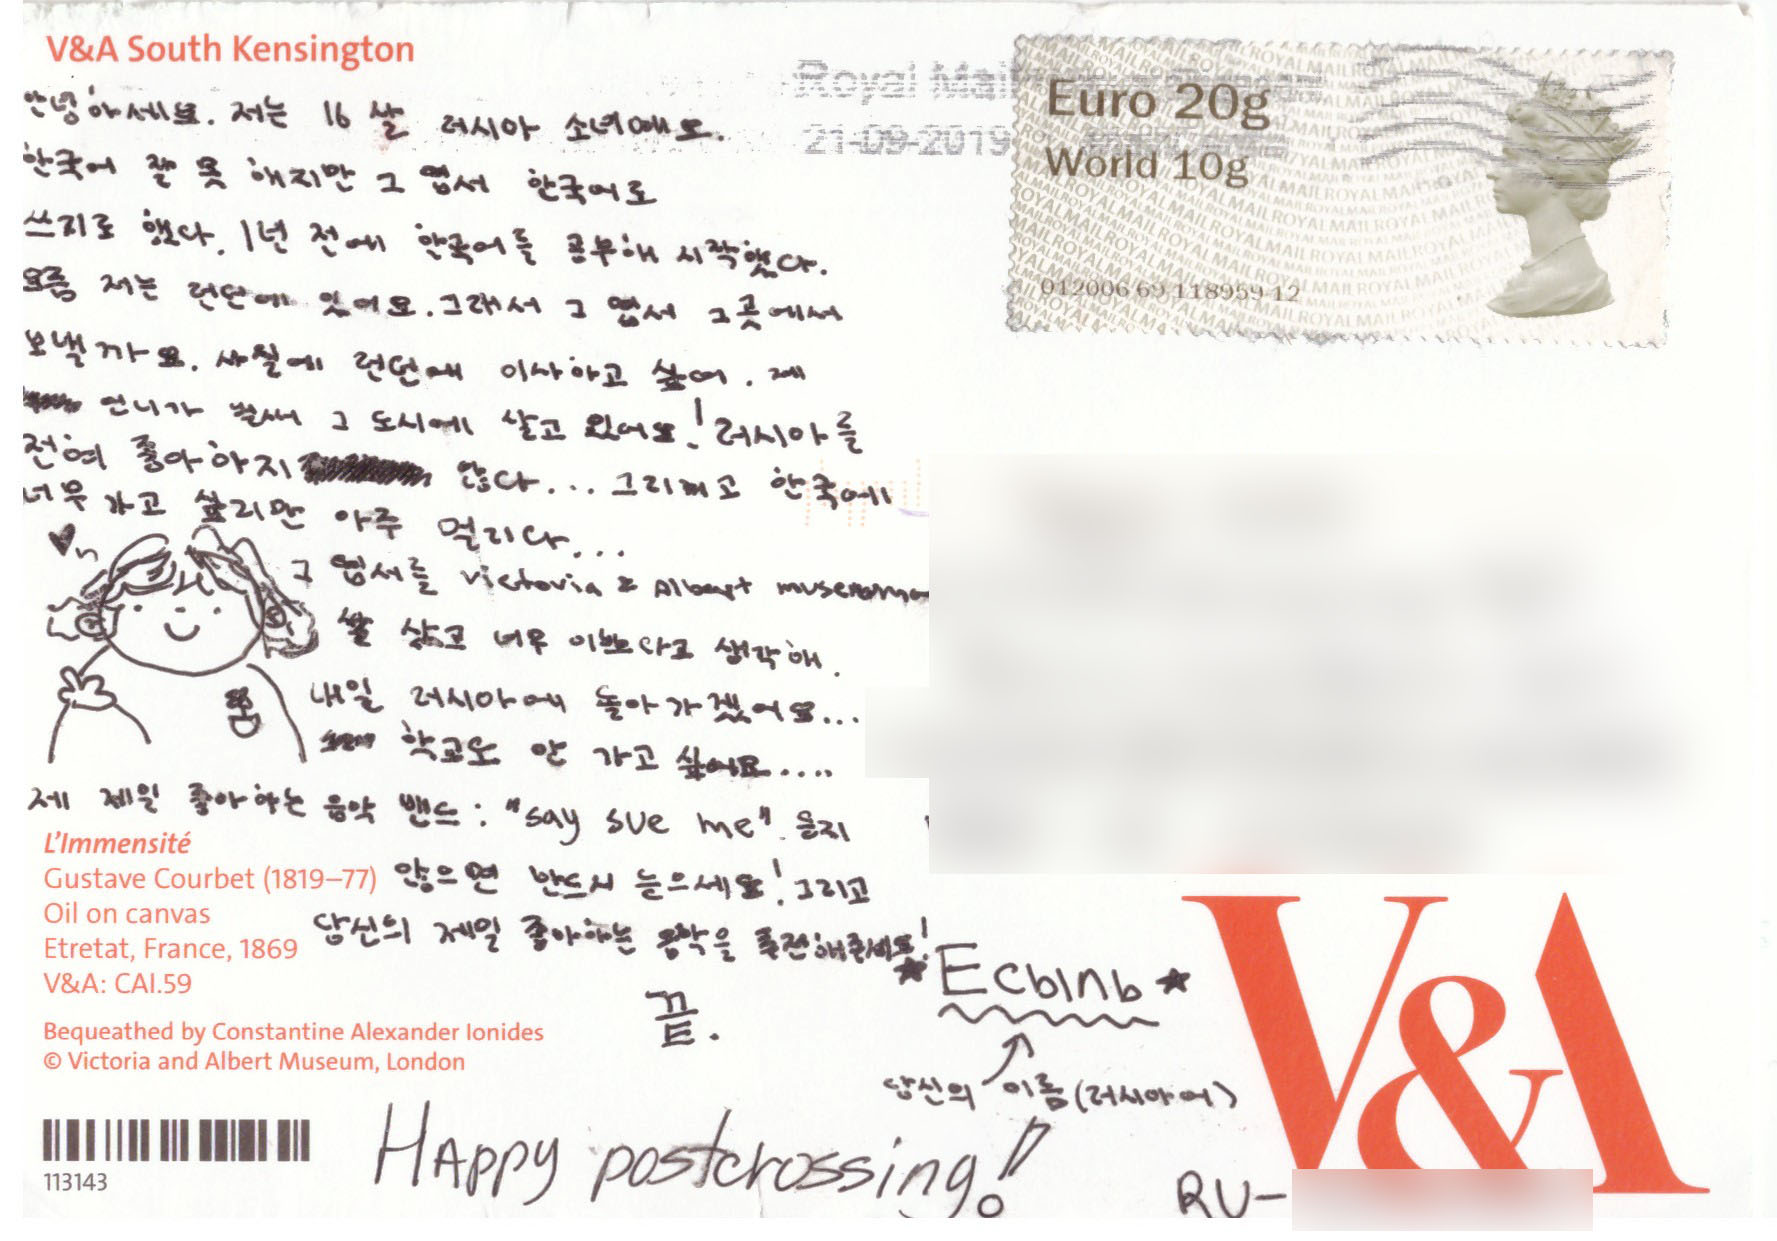 V&A South Kensington
Royal Mail
21-09-2019
Euro 20g
World 10g
012006 69 118959 12
안녕하세요. 저는 16 살 러시아 소녀에요.
한국어 잘 못 해지만 그 엽서 한국어로
쓰기로 했다. 1년 전에 한국어를 공부해 시작했다.
요름 저는 런던에 잇어요. 그래서 그 엽서 그곳에서
보낼까요. 사월에 런던에 이사하고 싶어. 제
언니가 벌써 그 도시에 살고 있어요! 러시아를
전여 좋아하지 않다... 그리끼고 한국에
너무 가고 싶리만 아주 멀리다...
그 엽서를 Victoria & Albert museum
살고 너무 이쁘다고 생각해.
내일 러시아에 돌아가겠어요...
학교도 안 가고 싶어요....
제 제일 좋아하는 음악 밴드: "say sue me". 듣지
않으면 반드시 듣으세요! 그리고
당신의 제일 좋아하는 음악을 추전해주세요!
끝.
L'Immensité
Gustave Courbet (1819–77)
Oil on canvas
Etretat, France, 1869
V&A: CAI.59
Bequeathed by Constantine Alexander Ionides
© Victoria and Albert Museum, London
113143
Есыпь
당신의 이름 (러시아어)
Happy postcrossing!
RU-
V&A